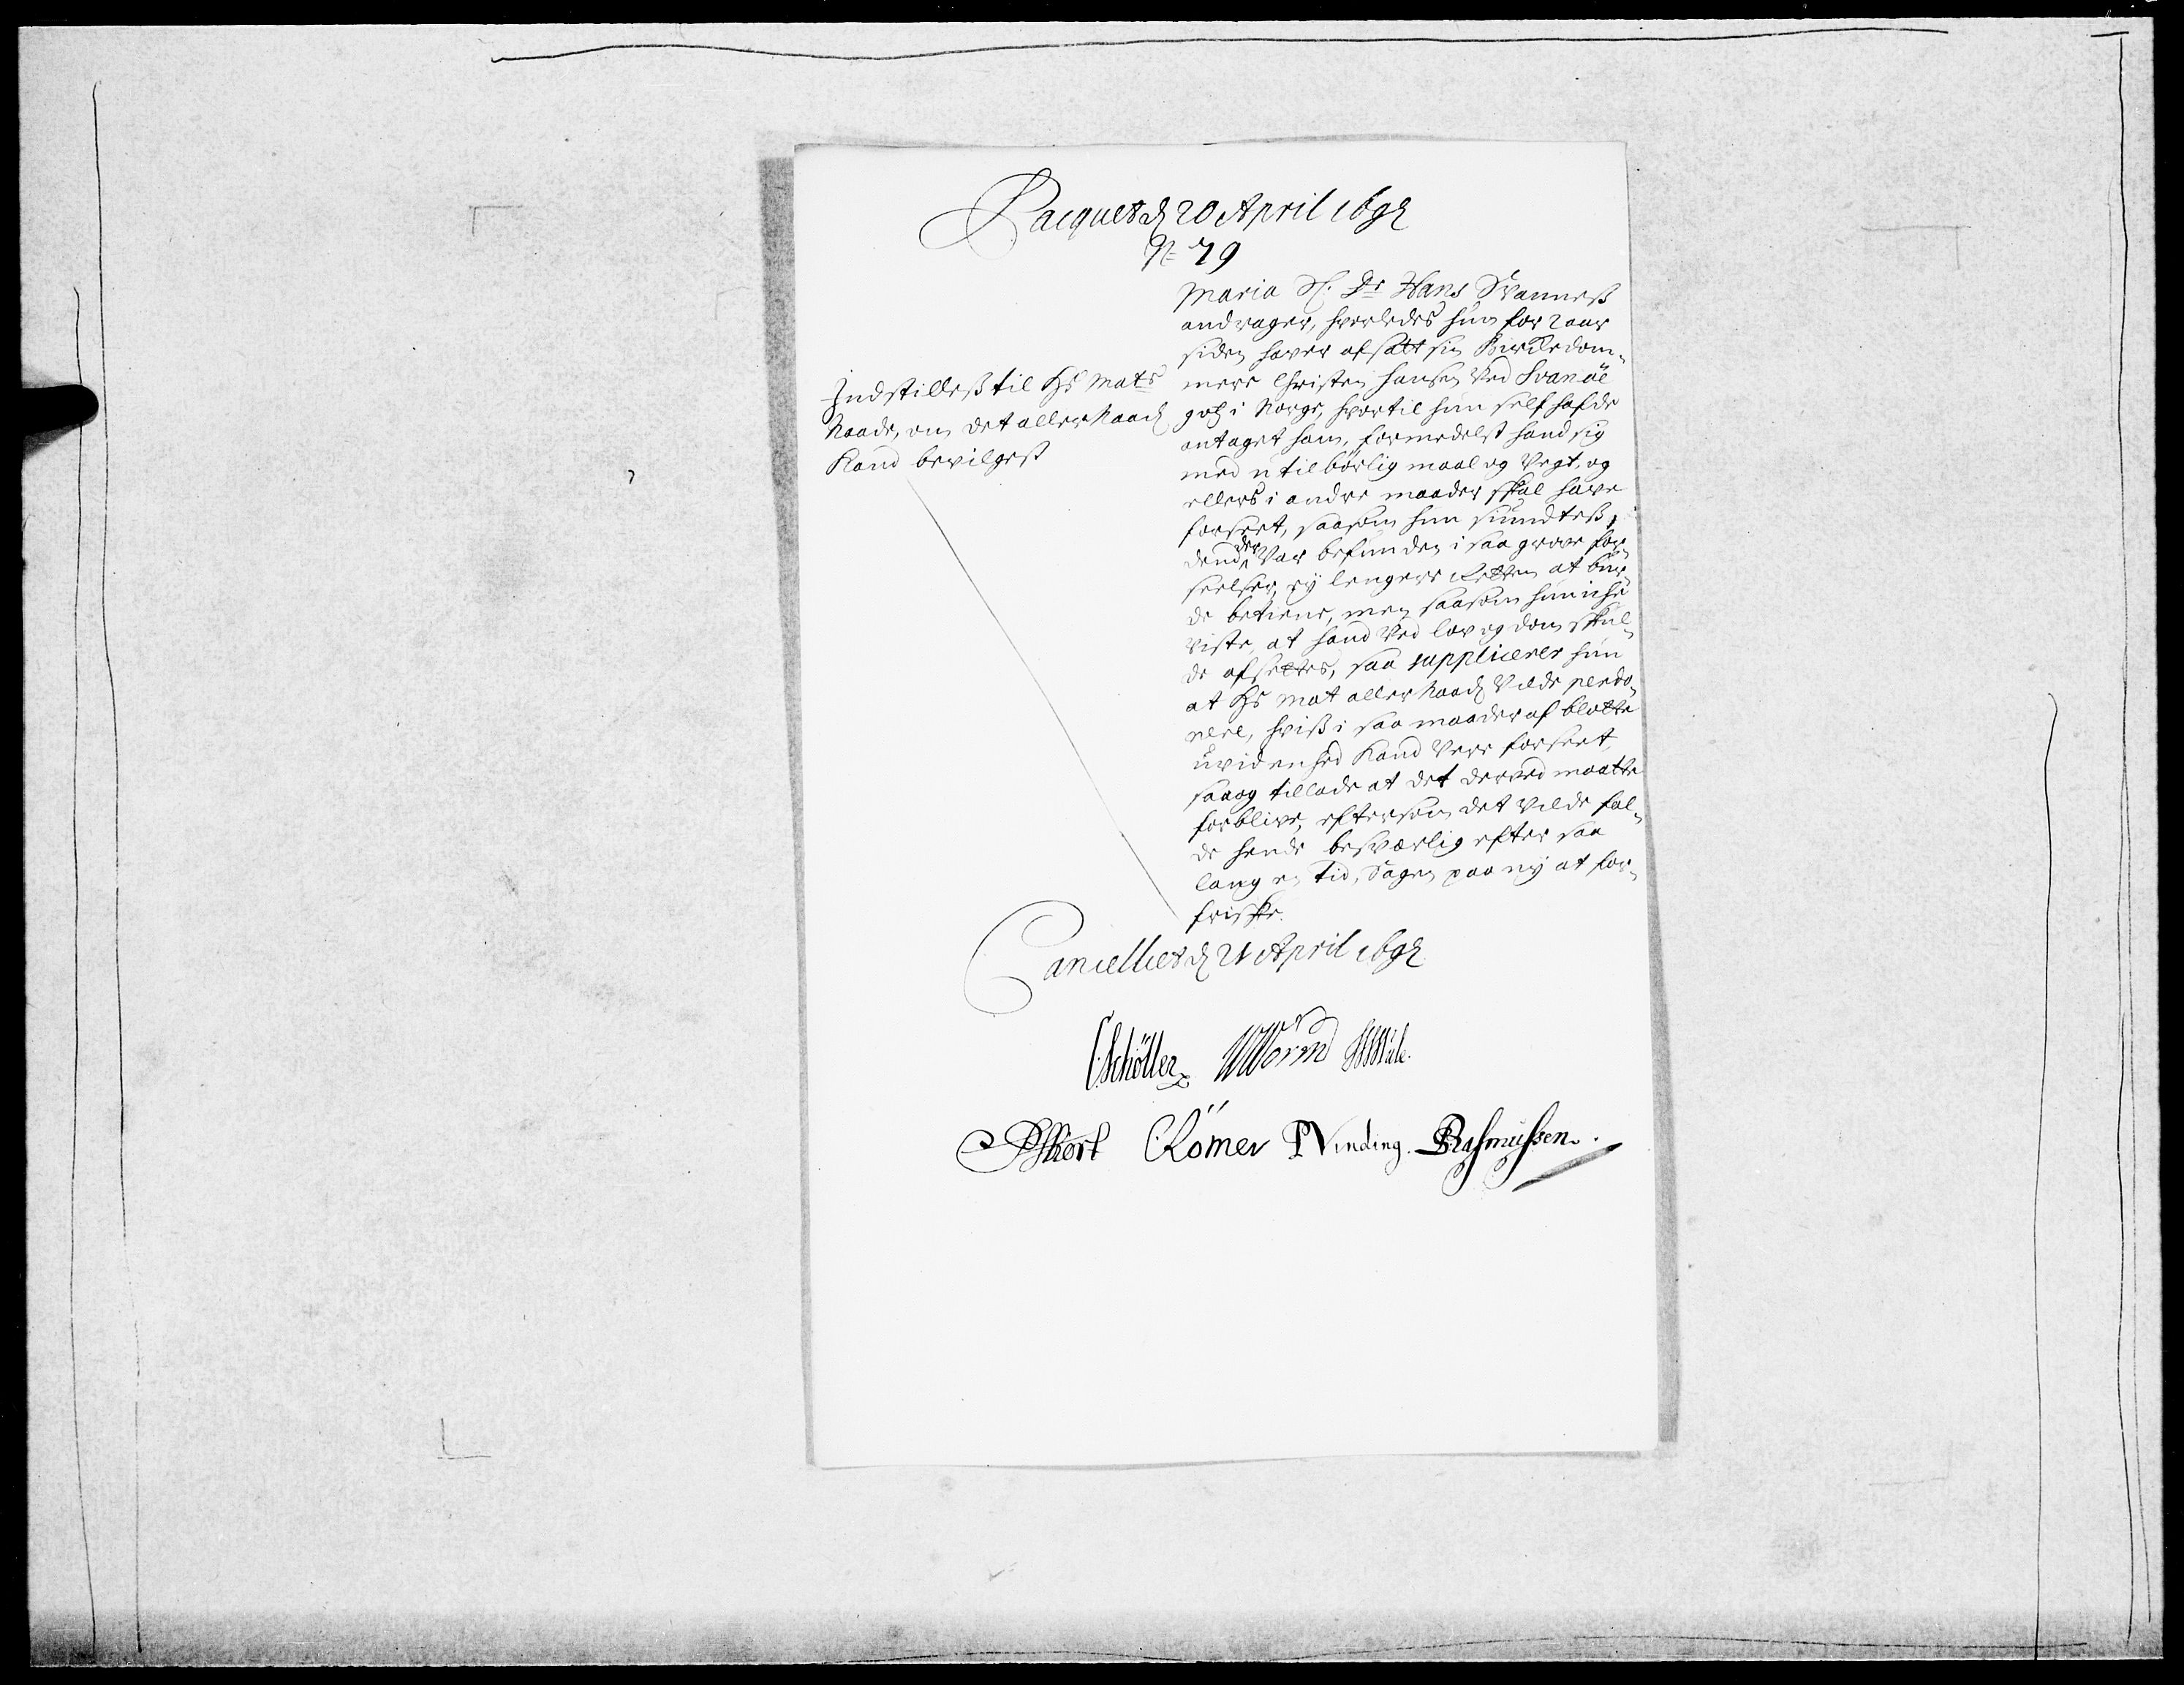 Pacquet d 20 April 169
No 79
Maria Sl. Dr Hans Svanneß
andrager, hvorledes hun for 2 aar
siden haver afsatt sin Birckedom¬
mere Christen Hansen ved Svanöe
gotz i Norge, hvortil hun self hafde
antaget ham, formedelst hand sig
med utilbörlig maal og Vegt, og
ellers i andre maader skal have
forseet, saasom hun siuntes,
dend der Var befunden i saa grove for¬
seelser, ey lengere Retten at bur¬
de betiene, men saasom hun icke
viste, at hand ved lov og dom skul¬
de afsettes, saa supplicerer hun
at Hs Mat allernaad Vilde perdo¬
nere, hviß i saa maader af blotte
uvidenhed kand vere forseet,
saa og tillade at det derved maatte
forblive, eftersom det Vilde fal¬
de hende besværlig efter saa
lang en tid, Sagen paa ny at for¬
friske.
Indstilleß til Hs Mats
Naade, om det allernaad
kand bevilgeß
Cancelliet d 21 April 169
CSchöller WWorm
CRömer PVinding. Rasmussen.